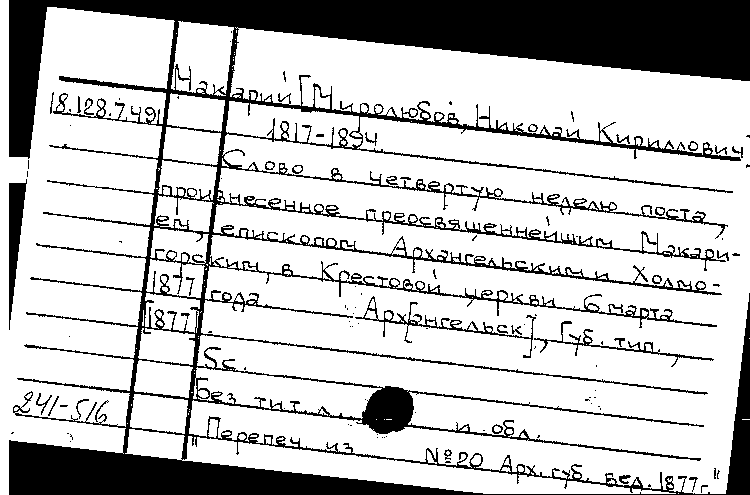 Макарий [Миролюбов, Николай Кириллович]
18.128.7.491
1817-1894.
Слово в четвертую неделю поста,
произнесенное преосвященнейшим Макари-
ем, епископом Архангельским и Холмо-
горским, в Крестовой церкви 6 марта
1877 года. Арх[ангельск], Губ. тип.,
[1877].
5с.
Без тит. л. и обл.
241-516
"Перепеч. из №20 Арх. губ. вед. 1877г."